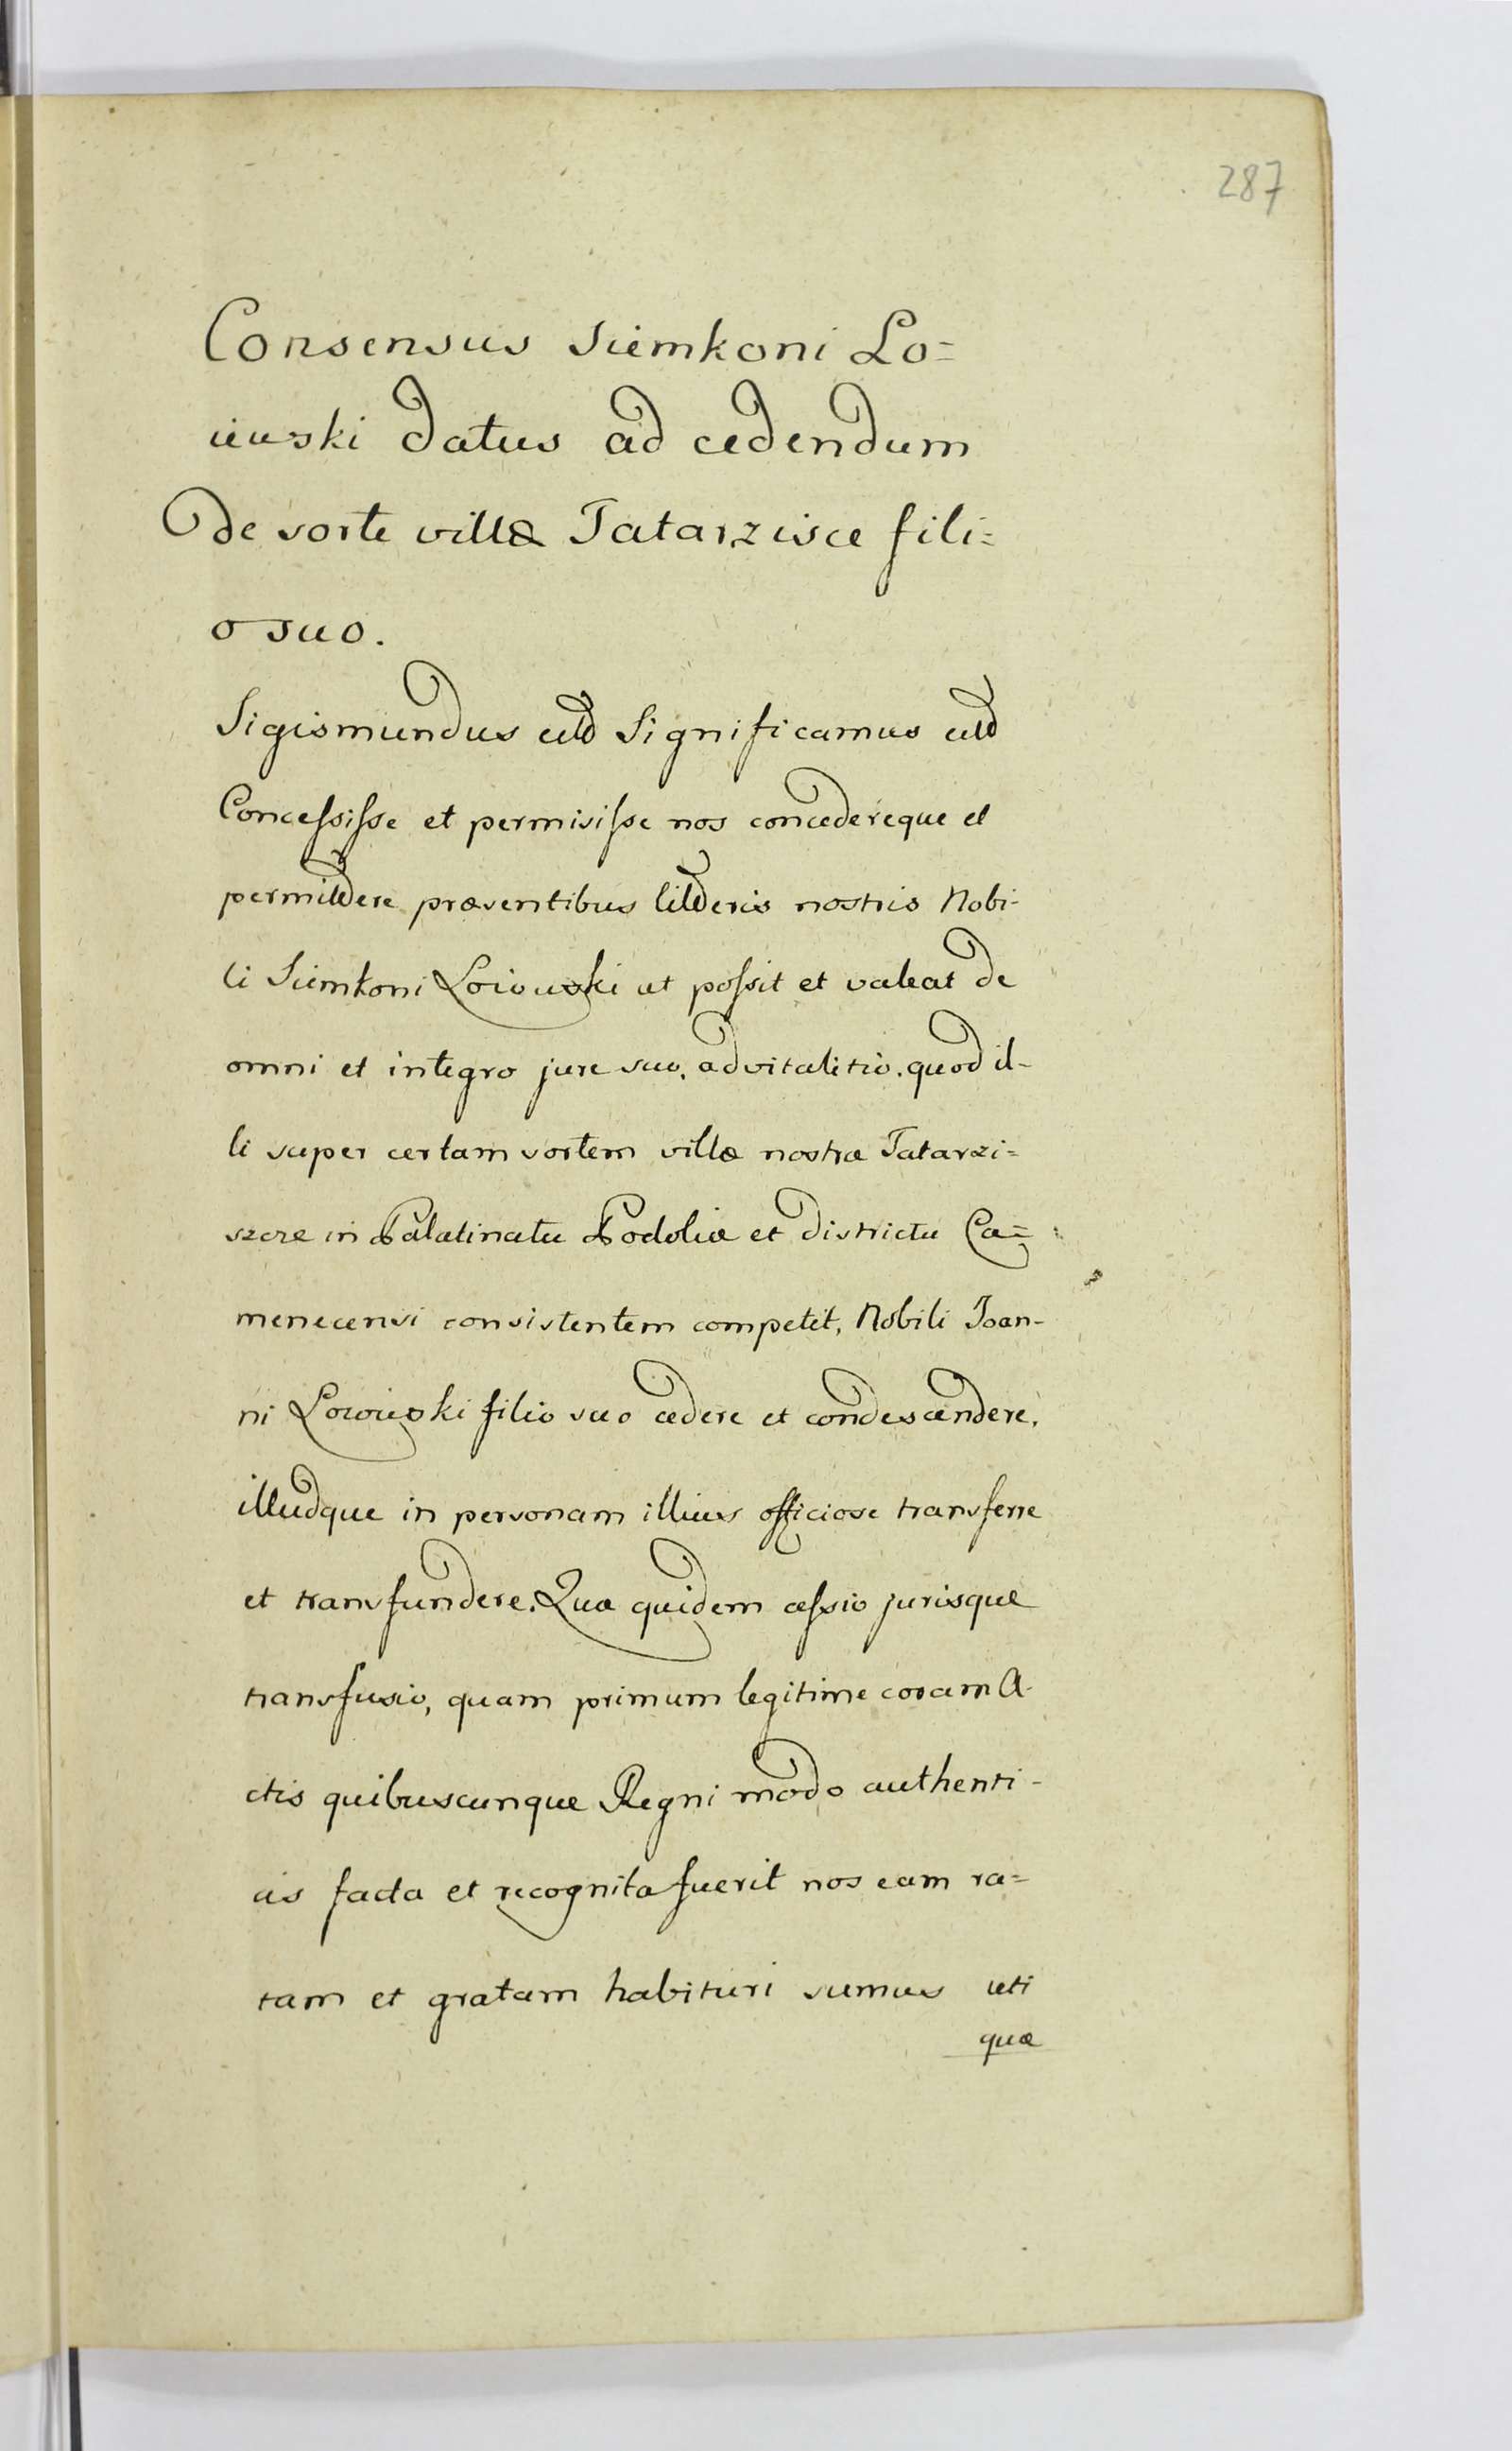 287
Consensus Siemkoni Lo=
iewski datus ad cedendum
de sorte villæ Tatarzisce fili=
o suo.
Sigismundus Significamus
Concessisse et permisisse nos concedereque et
permittere præsentibus litteris nostris Nobi-
li Siemkoni Loiowski ut possit et valeat de
omni et integro jure suo, advitalitio, quod il-
li super certam sortem villæ nostræ Tatarzi=
szcze in Palatinatu Podoliæ et districtu Ca=
menecensi consistentem competit, Nobili Joan-
ni Loiowski filio suo cedere et condescendere,
illudque in personam illius officiose transferre
et transfundere. Quæ quidem cessio jurisque
transfusio, quam primum legitime coram A-
ctis quibuscunque Regni modo authenti-
cis facta et recognita fuerit nos eam ra=
tam et gratam habituri sumus uti
quæ